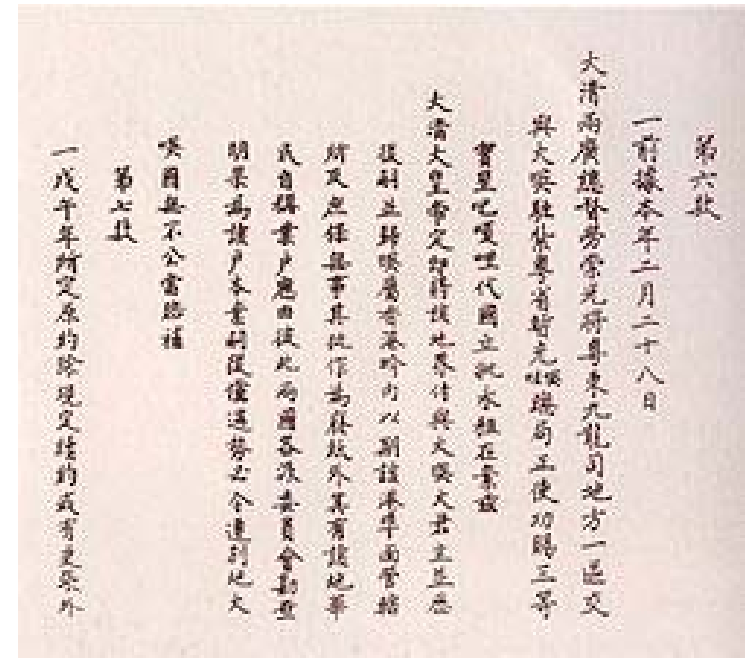 第六款
一前據本年二月二十八日
大清兩廣總督勞崇光將粵東九龍司地方一區交
與大𠸄駐紮粵省暫充𠸄局正使功賜三等
寶星吧嗄哩代國立批永租在案茲
大清大皇帝定即將該地界付與大𠸄大君主並歷
後嗣並歸𠸄屬香港界內以期該港埠面管轄
所及庶保無事其批作為廢紙外其有該地華
民自稱業戶應由彼此兩國各派委員會勘查
明果為該戶本業嗣後倘遇勢必令遷別地大
𠸄國無不公當賠補
第七款
一戊午年所定原約除現定續約或有更張外